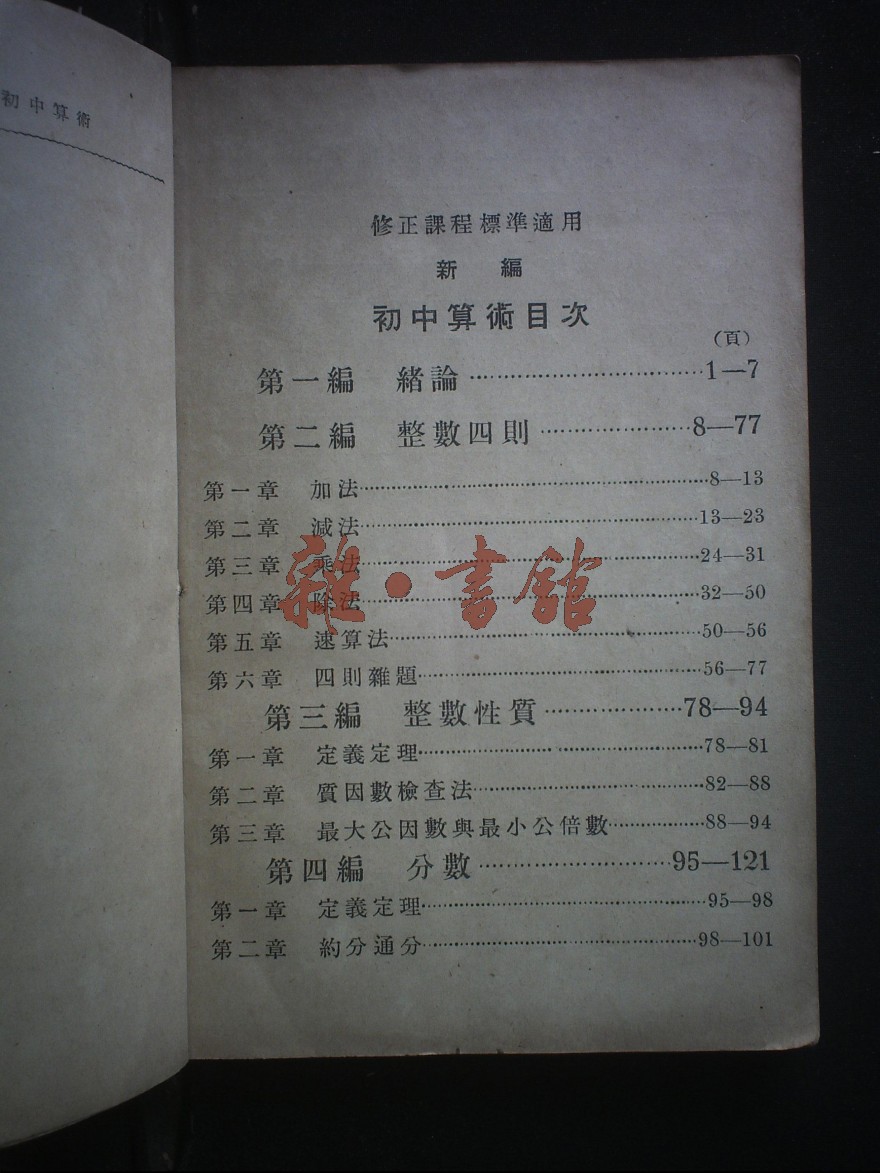 初中算術
修正課程標準適用
新編
初中算術目次
(頁)
第一編 緒論……………………………1—7
第二編 整數四則…………………8—77
第一章 加法……………………………………8—13
第二章 減法……………………………………13—23
第三章 乘法……………………………………24—31
第四章 除法……………………………………32—50
第五章 速算法…………………………………50—56
第六章 四則雜題………………………………56—77
第三編 整數性質………………78—94
第一章 定義定理………………………………78—81
第二章 質因數檢查法…………………………82—88
第三章 最大公因數與最小公倍數……………88—94
第四編 分數……………………95—121
第一章 定義定理………………………………95—98
第二章 約分通分………………………………98—101
雜·書館